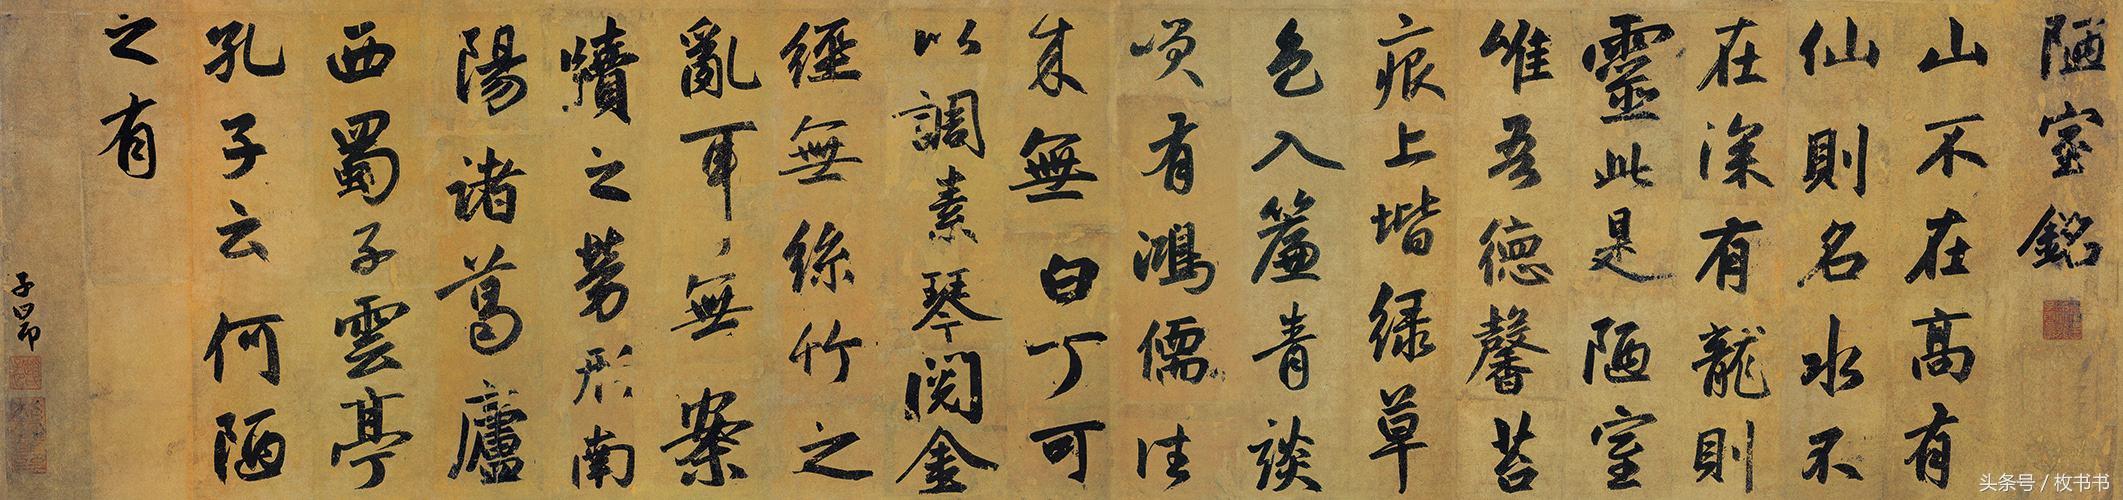 陋室銘
山不在高有
仙則名水不
在深有龍則
靈此是陋室
惟吾德馨苔
痕上堦緑草
色入簾青談
咲有鴻儒往
来無白丁可
以調素琴閱金
經無絲竹之
亂耳無案
牘之勞形南
陽諸葛廬
西蜀子雲亭
孔子云何陋
之有
子昂
头条号 / 枚书书